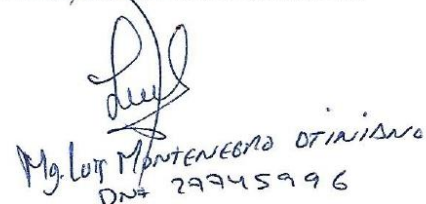 Mg. Luis MONTENEGRO OTINIANO
DNI 27745996